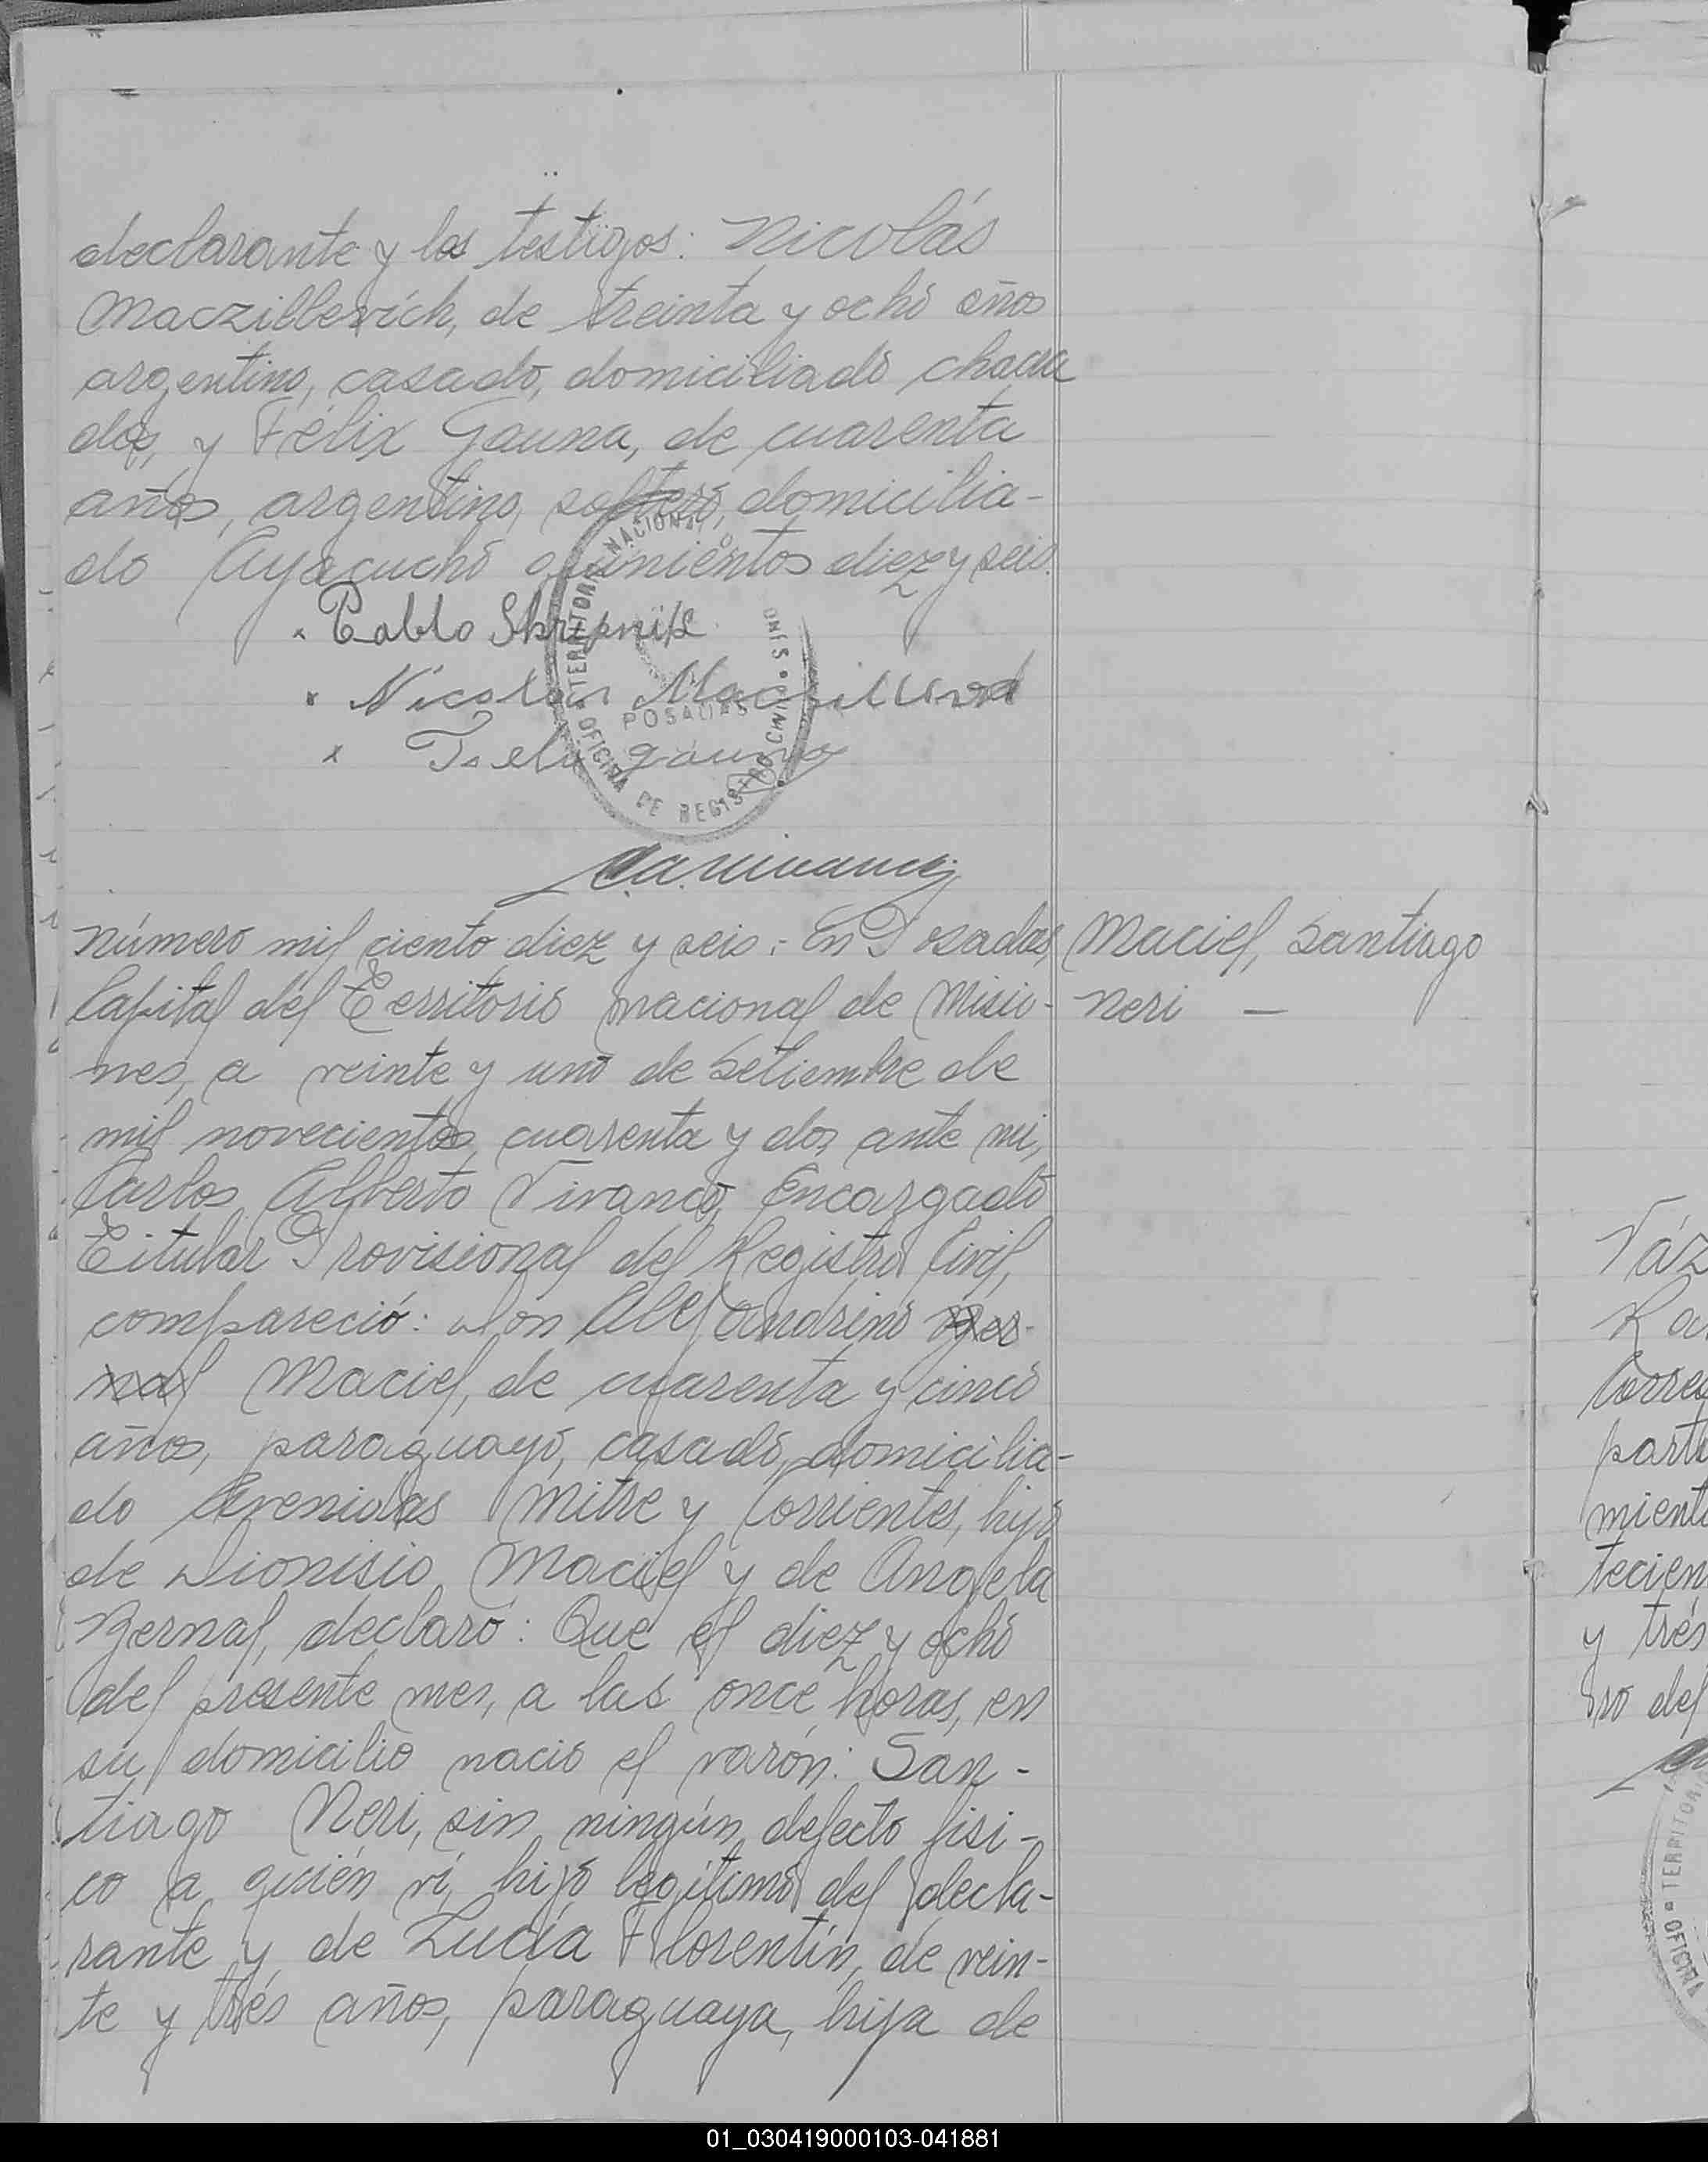 declarante y los testigos: Nicolás
Maczillevich, de treinta y ocho años
argentino, casado, domiciliado chacra
dos, y Félix Gauna, de cuarenta
años, argentino, soltero, domicilia-
do Ayacucho quinientos diez y seis.
Pablo Skripnik
Nicolas
gauna
TERRITORIO NACIONAL
POSADAS
OFICINA DE REGISTRO CIVIL
Número mil ciento diez y seis: En Posadas,
Capital del Territorio Nacional de Misio-
nes, a veinte y uno de Setiembre de
mil novecientos cuarenta y dos, ante mi,
Carlos Alberto Vivanco, Encargado
Titular Provisional del Registro Civil,
compareció: Don Alejandrino Ber-
nal Maciel, de cuarenta y cinco
años, paraguayo, casado, domicilia-
do Avenidas Mitre y Corrientes, hijo
de Dionisio Maciel y de Angela
Bernal, declaró: Que el diez y ocho
del presente mes, a las once horas, en
su domicilio nació el varón: San-
tiago Neri, sin ningún defecto físi-
co a quién ví, hijo legítimo del decla-
rante y de Lucía Florentín, de vein-
te y trés años, paraguaya, hija de
Maciel, Santiago
Neri —
Váz
Ro
Corre
part
mient
tecien
y trés
ro del
TERRITORI
OFICINA
01_030419000103-041881